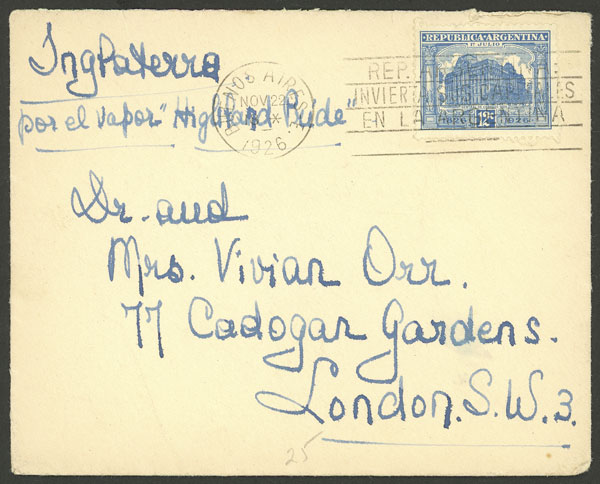 Inglaterra
por el vapor "Highland Pride"
BUENOS AIRES
NOV 22
1926
REP.
INVIERTA SUS CAPITALES
EN LA ARGENTINA
REPUBLICA ARGENTINA
1º JULIO
12c
1826 1926
Dr. and
Mrs. Vivian Orr.
77 Cadogan Gardens.
London. S.W. 3.
25